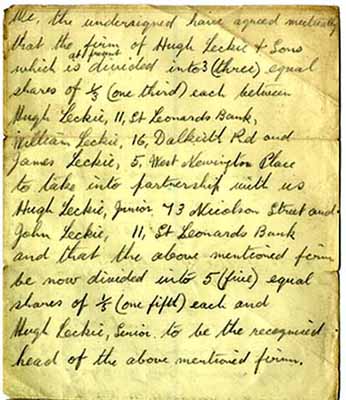 We, the undersigned have agreed mutually
that the firm of Hugh Leckie & Sons
at present
which is divided into 3 (three) equal
shares of 1/3 (one third) each between
Hugh Leckie, 11, St Leonards Bank,
William Leckie, 16, Dalkeith Rd and
James Leckie, 5, West Newington Place
to take into partnership with us
Hugh Leckie, Junior 73 Nicolson Street and
John Leckie, 11, St Leonards Bank
and that the above mentioned firm
be now divided into 5 (five) equal
shares of 1/5 (one fifth) each and
Hugh Leckie, Senior, to be the recognised
head of the above mentioned firm.